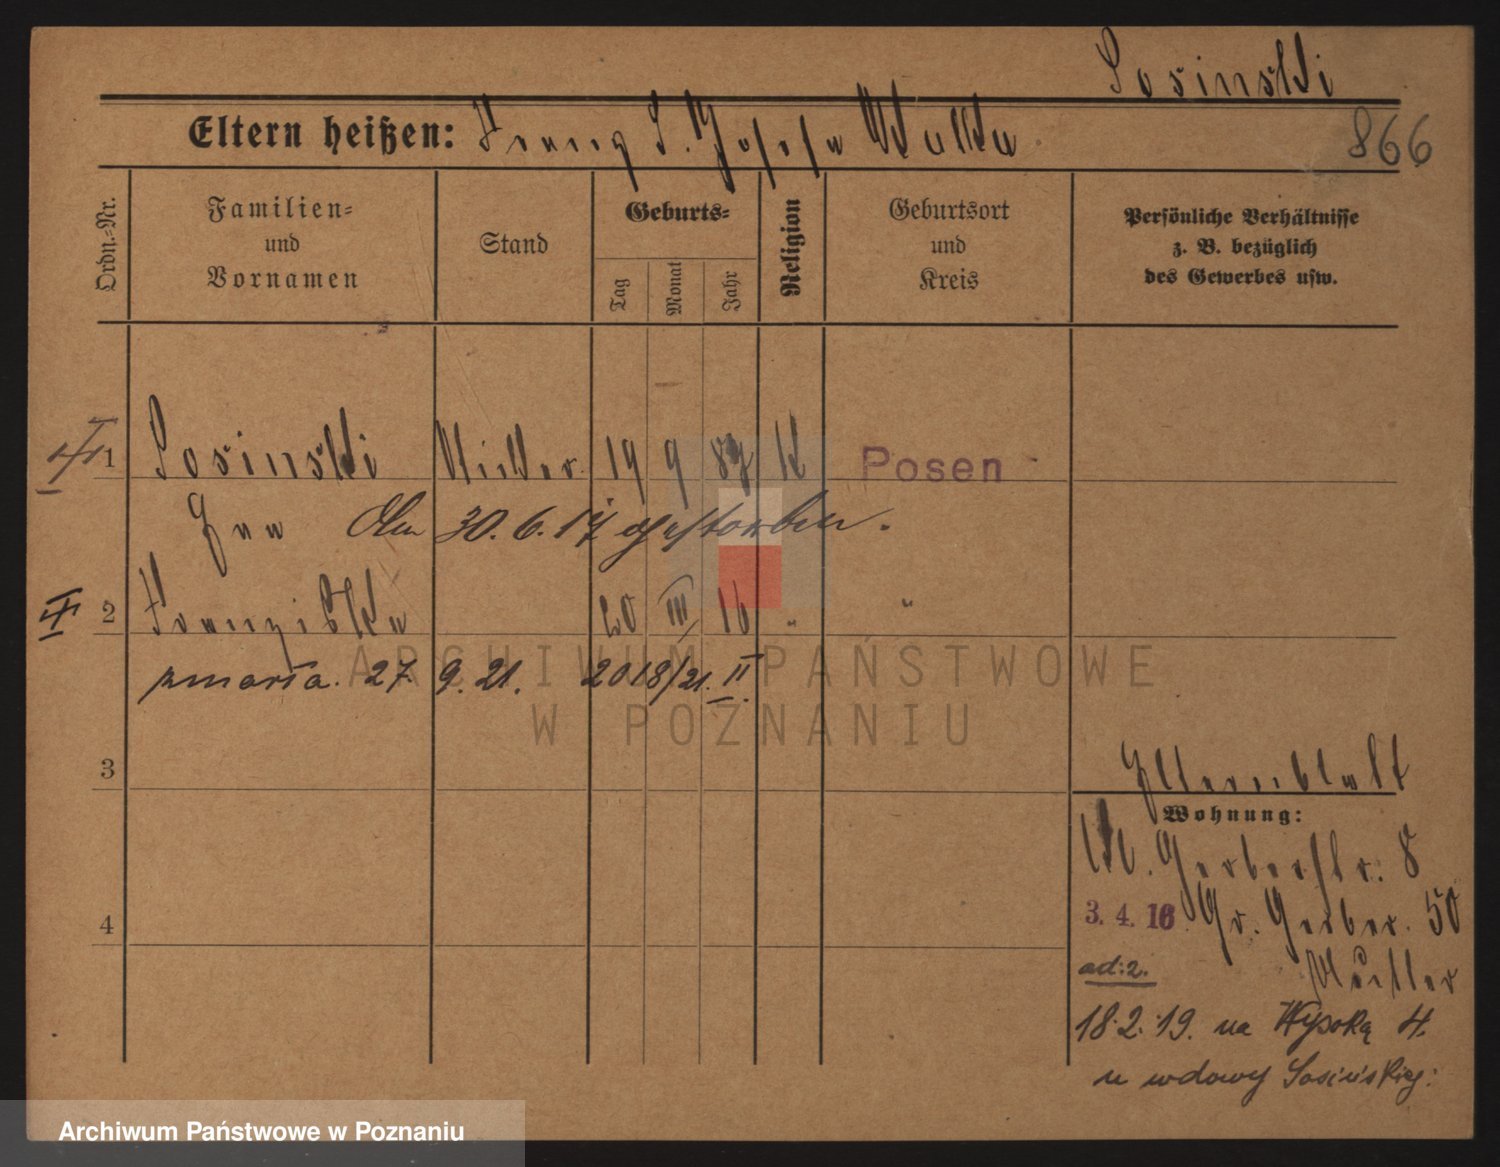 Sosinski
Eltern heißen: Franz S. Josefa
866
Ordn.-Nr.
Familien-
und
Vornamen
Stand
Geburts-
Tag
Monat
Jahr
Religion
Geburtsort
und
Kreis
Persönliche Verhältnisse
z. B. bezüglich
des Gewerbes usw.
1 Sosinski 19 9 87 K Posen
Am 30.6.17 gestorben.
2 Franziska 20 III 16 " "
zmarła. 27 9. 21. 2018/21. II.
3
Elternblatt
Wohnung:
Gerberstr. 8
3. 4. 16. Gr. Gerber. 50
4
ad: 2. Mutter
18.2.19. na Wysoką 4.
u wdowy Sosińskiej:
ARCHIWUM PAŃSTWOWE
W POZNANIU
Archiwum Państwowe w Poznaniu